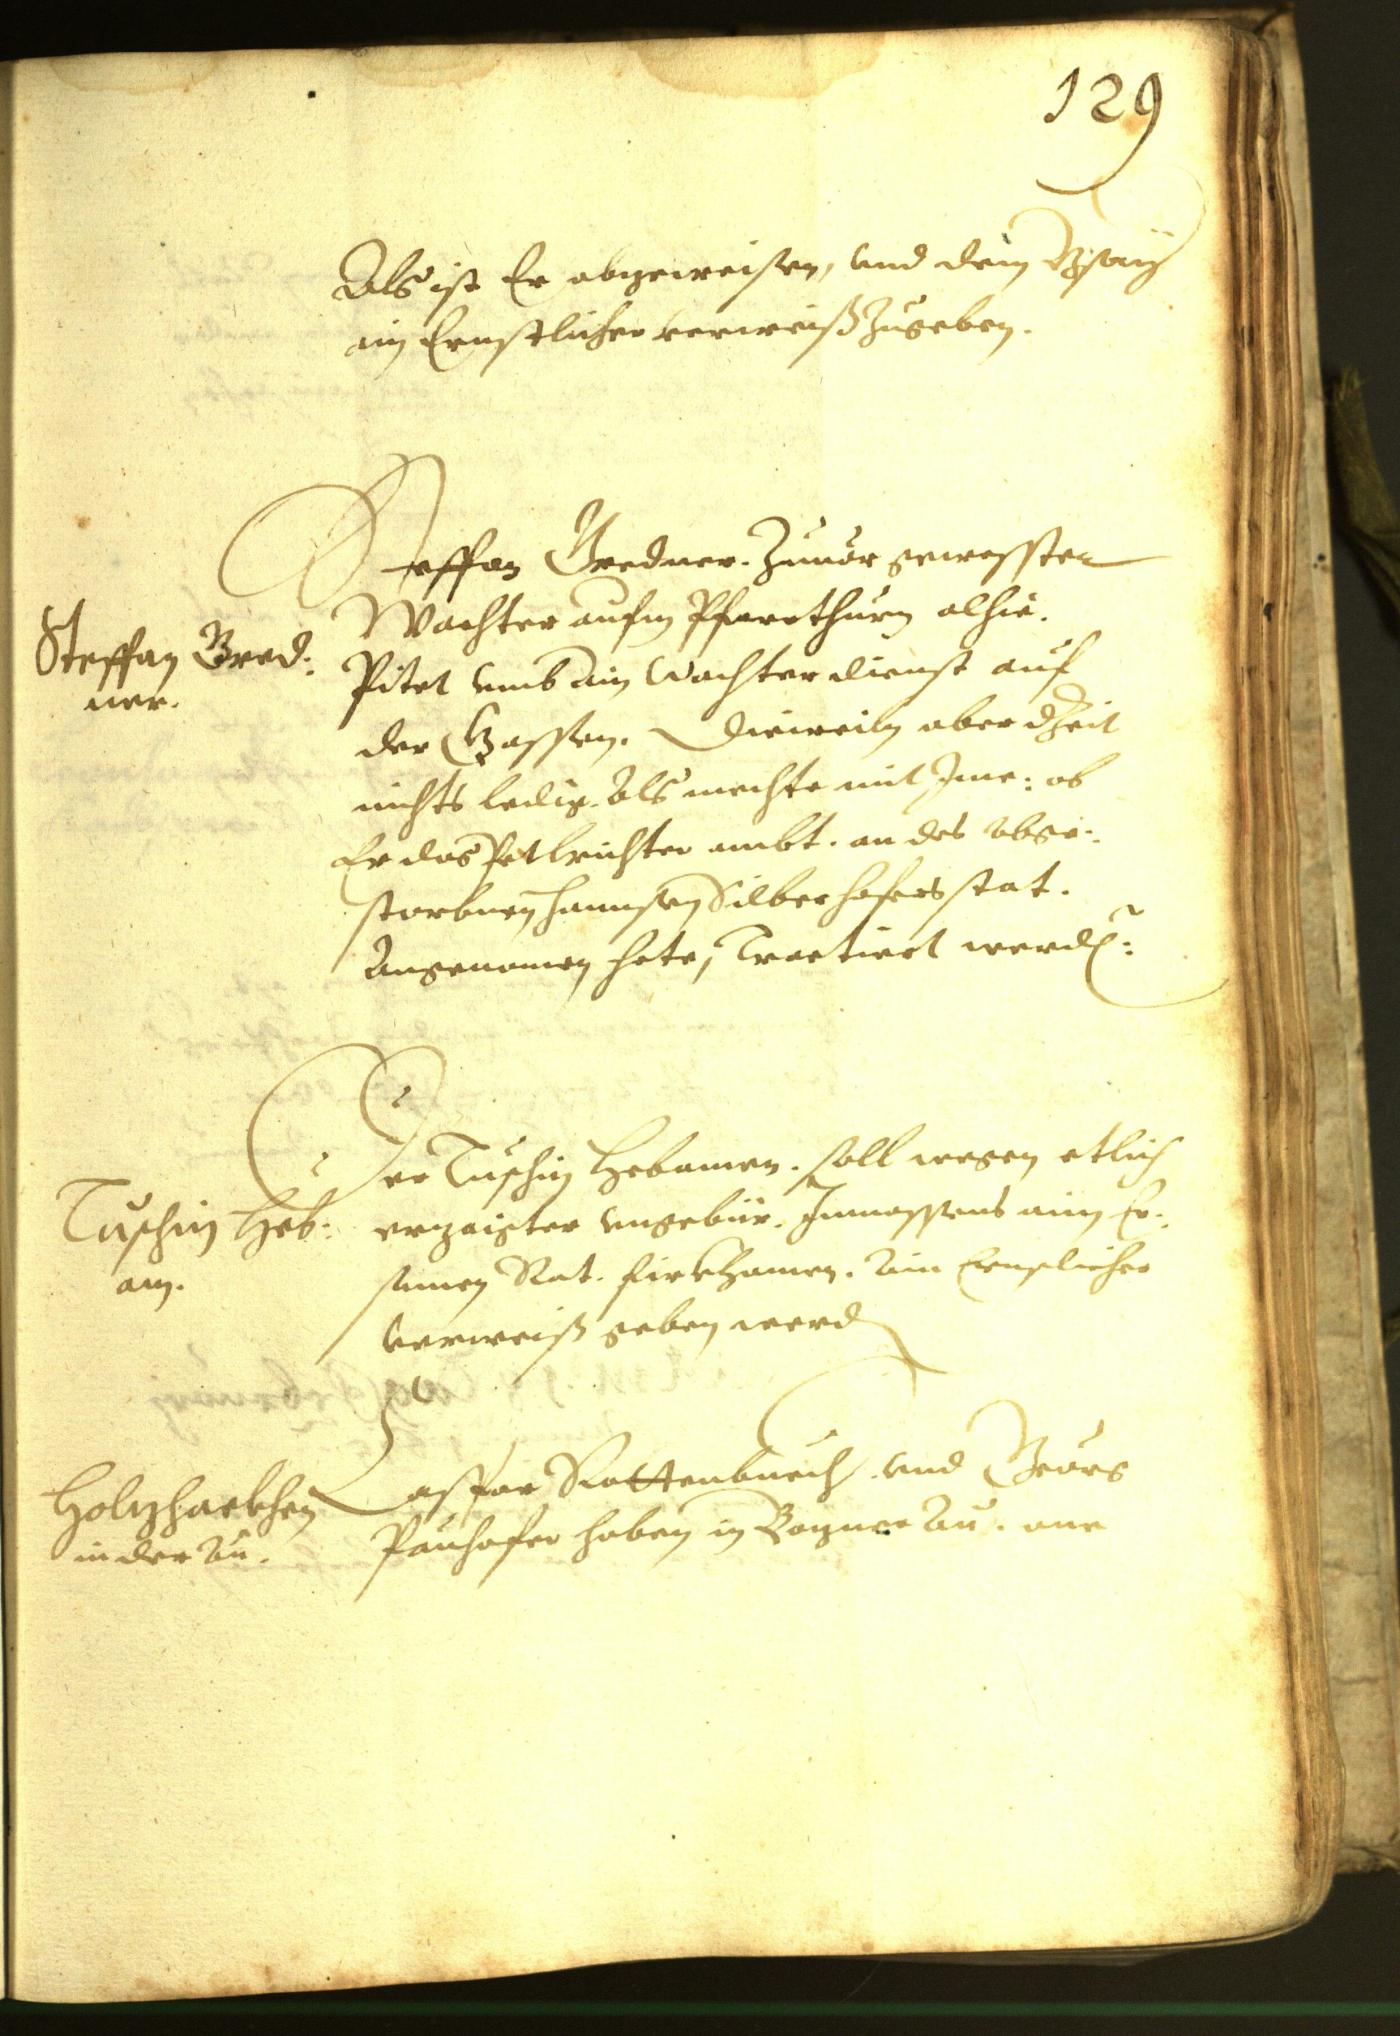 129
Als ist Er abgeweisen, und dem
ain Ernstlicher verweiß zugeben.
Steffan Gred:
ner.
Steffan Gredner. Zuuor gewester
Wachter aufm Pfarrthurn alhie.
Pitet umb ain Wachter dienst auf
der Gassen. Dieweiln aber dzeit
nichts ledig. Als mechte mit Jme: ob
Er das Petlrichter ambt. an des abge:
storbnen Hannsen Silberhofers stat.
Angenomen hete, Tractiert werdn:
Tuschin Heb:
am.
Der Tuschin Hebamen. soll wegen etlich
erzaigter ungebür. Jnmassens ainen Er:
samen Rat. fürkhamen. Ain Ernstlicher
verweiß geben werdn
Holtzhackhen
in der Au.
Caspar Rottenbuech und Georg
Pauhofer haben in Bozner Au. ane